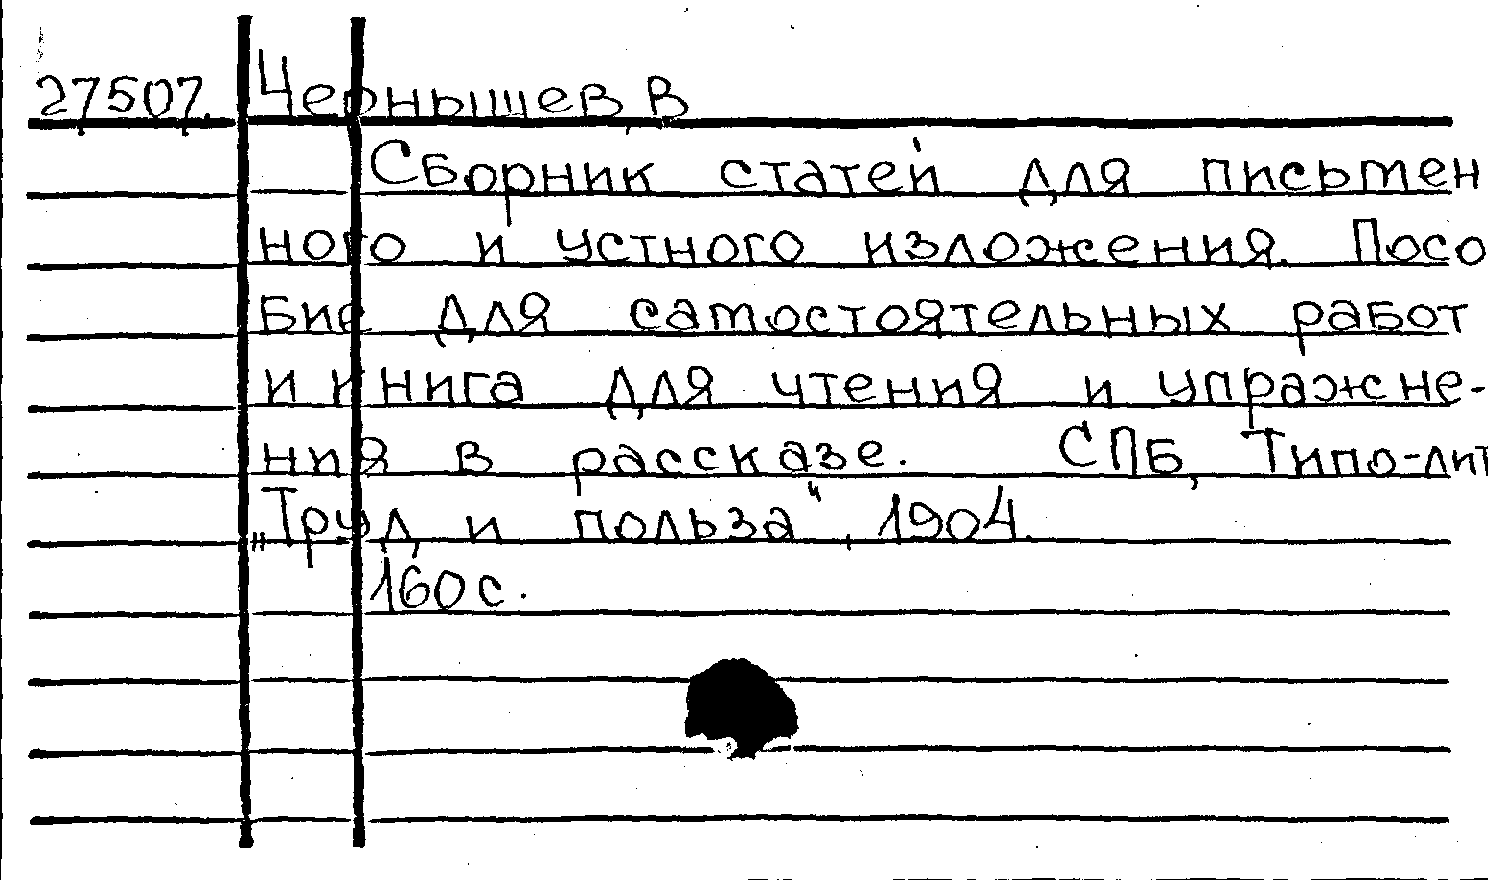 27507. Чернышев, В
Сборник статей для письмен
ного и устного изложения. Посо
бие для самостоятельных работ
и книга для чтения и упражне-
ния в рассказе. СПБ, Типо-лит
„Труд и польза“, 1904.
160 с.